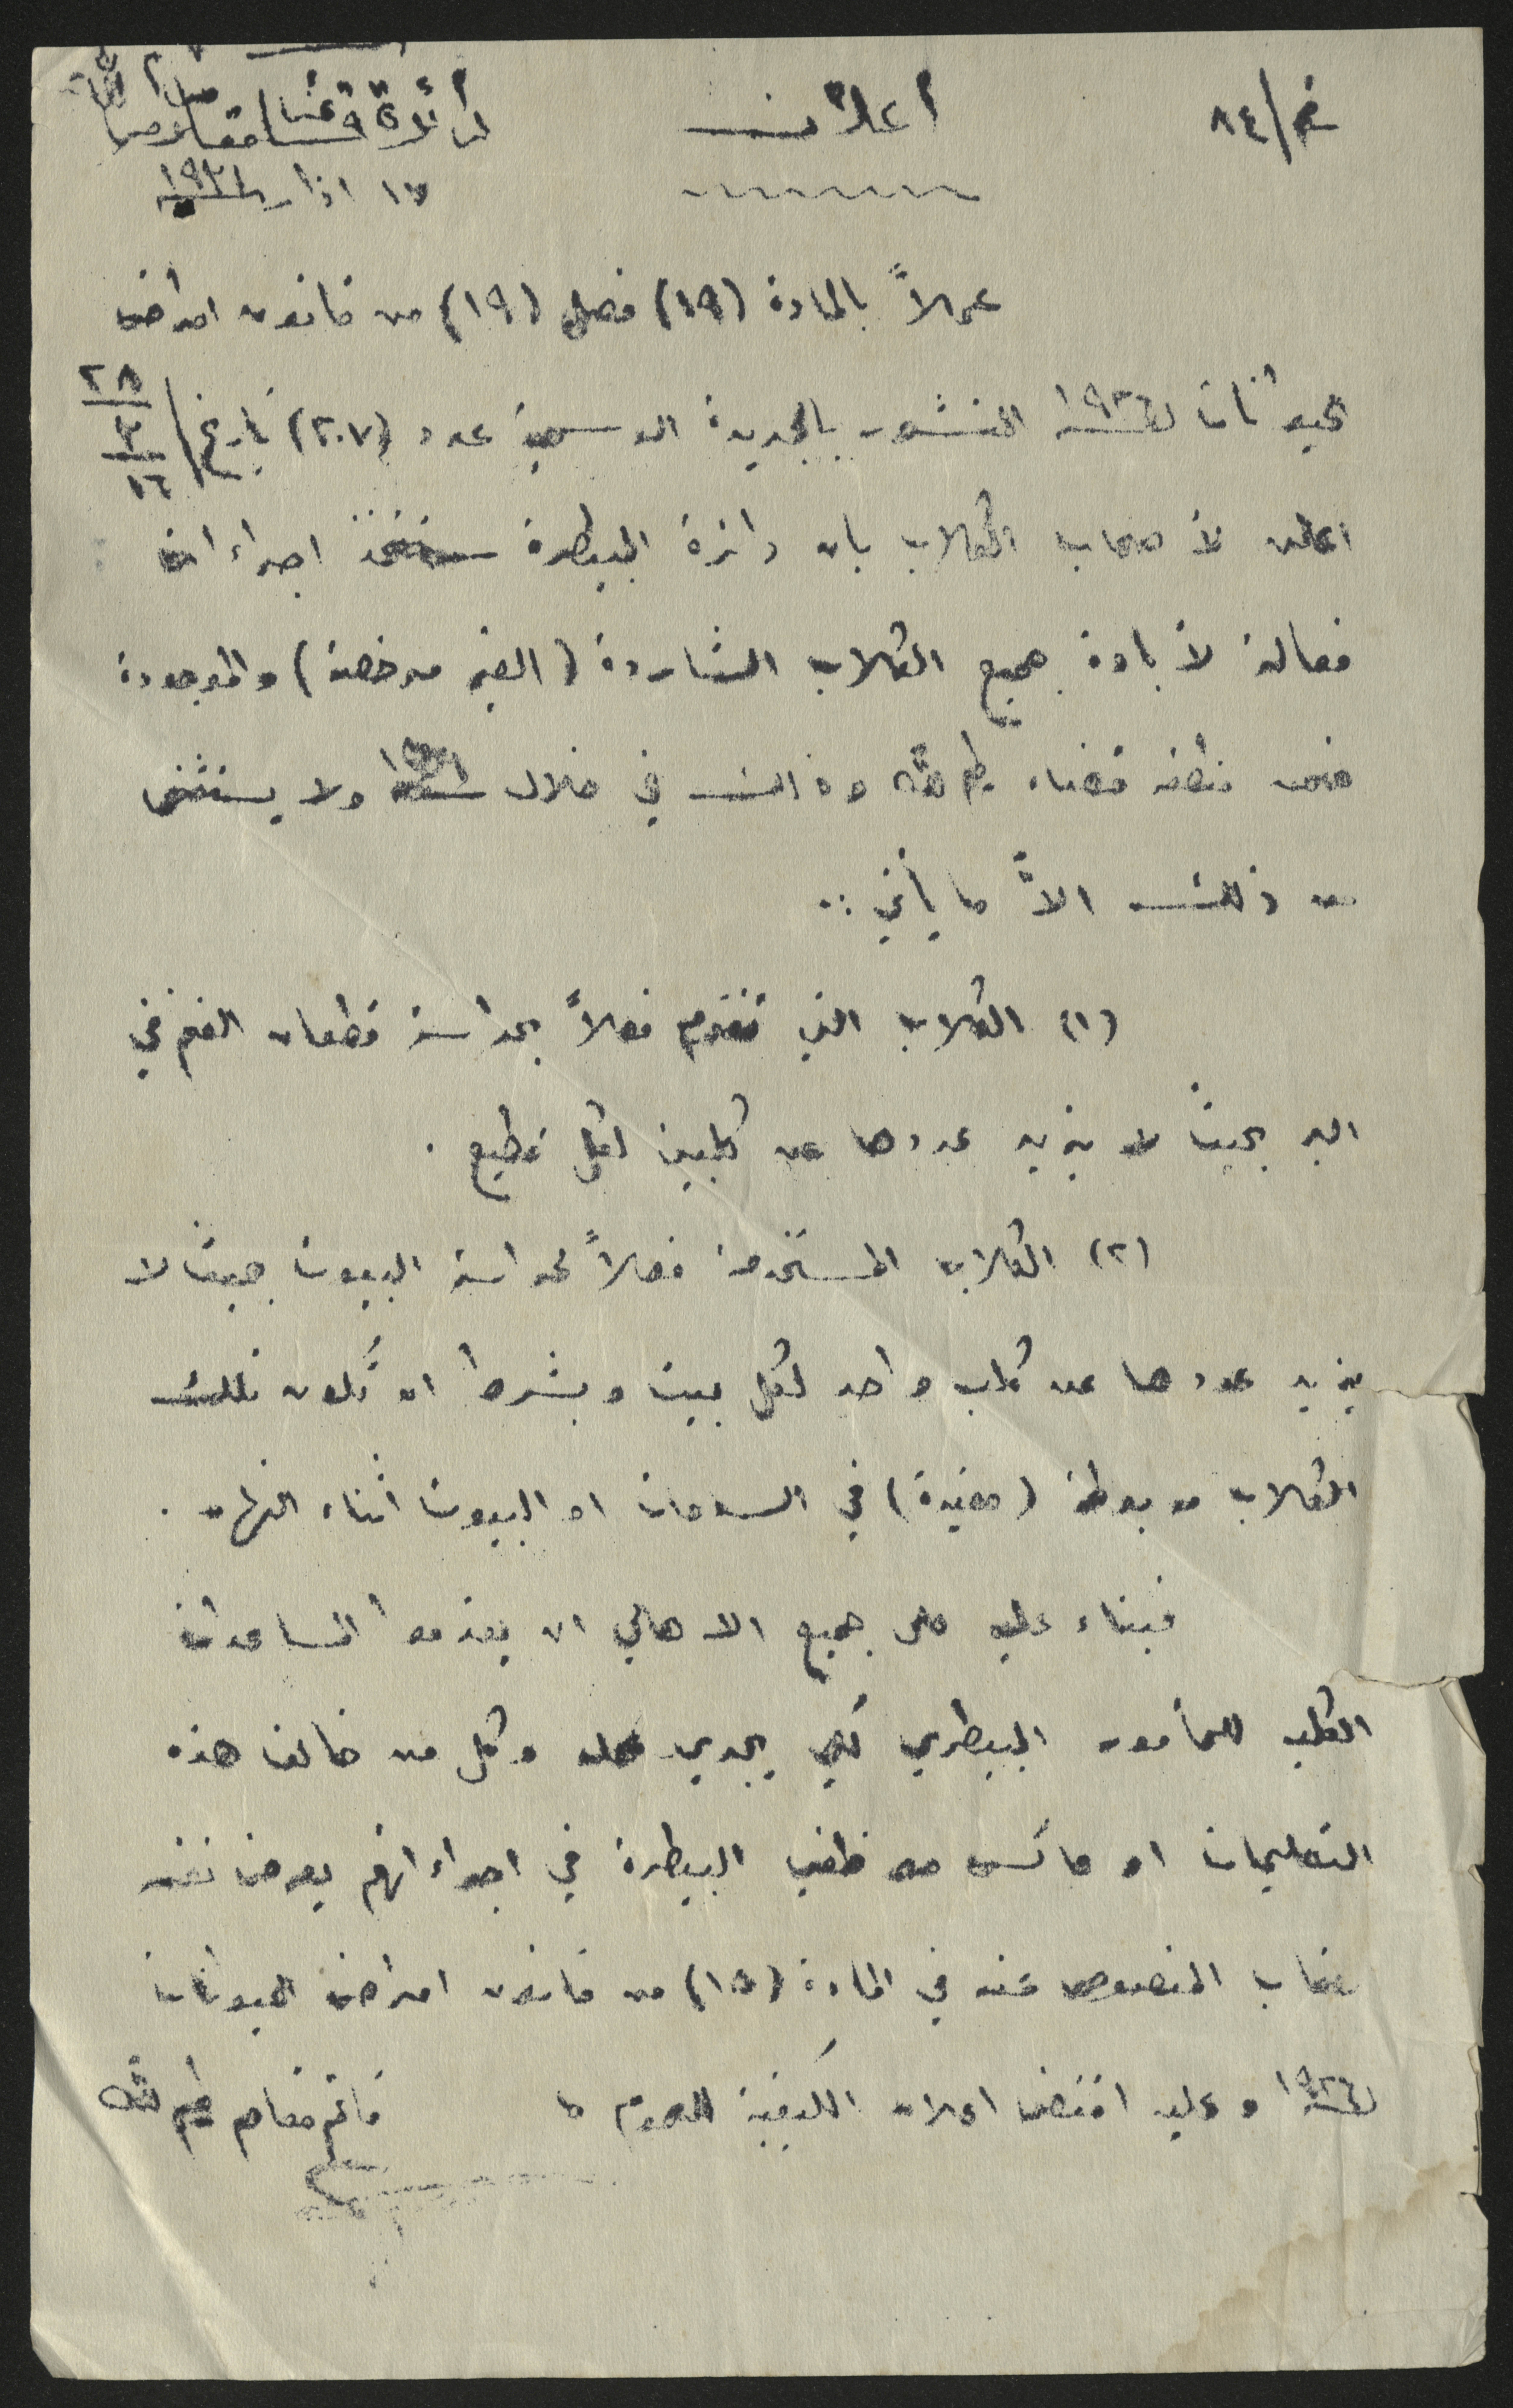 نمرة/٨٤
اعلان
دائرة قائمقام طولكرم
١٧ اذار سنة ١٩٣١
عملاً بالمادة (١٩) فصل (١٩) من قانون امراض
الحيوانات لسنة ١٩٢٦ المنشور بالجريدة الرسمية عدد (٢٠٧) تاريخ ٢٨/٣/٢٦
اعلن لأصحاب الكلاب بان دائرة البيطرة ستتخذ اجراءات
فعالة لأبادة جميع الكلاب الشاردة (الغير مرخصة) والموجودة
ضمن منطقة قضاء طولكرم وذلك في خلال سنة ١٩٣١ ولا يستثنى
من ذلك الاّ ما يأتي :-
(١) الكلاب التي تقوم فعلاً بحراسة قطعان الغنم في
البر بحيث لا يزيد عددها عن كلبين لكل قطيع .
(٢) الكلاب المستخدمة فعلاً لحراسة البيوت بحيث لا
يزيد عددها عن كلب واحد لكل بيت وبشرط ان تكون تلك
الكلاب مربوطة (مقيدة) في الساحات او البيوت اثناء النهار .
فبناء عليه على جميع الاهالي ان يقدموا المساعدات
الكلية للمأمور البيطري لكي يجري عمله وكل من خالف هذه
التعليمات او عاكس موظفي البيطرة في اجراءاتهم يعرض نفسه
لعقاب المنصوص عنه في المادة (١٥) من قانون امراض الحيوانات
لسنة ١٩٢٦ وعليه اقتضى اعلان الكيفية للعموم
قائم مقام طولكرم